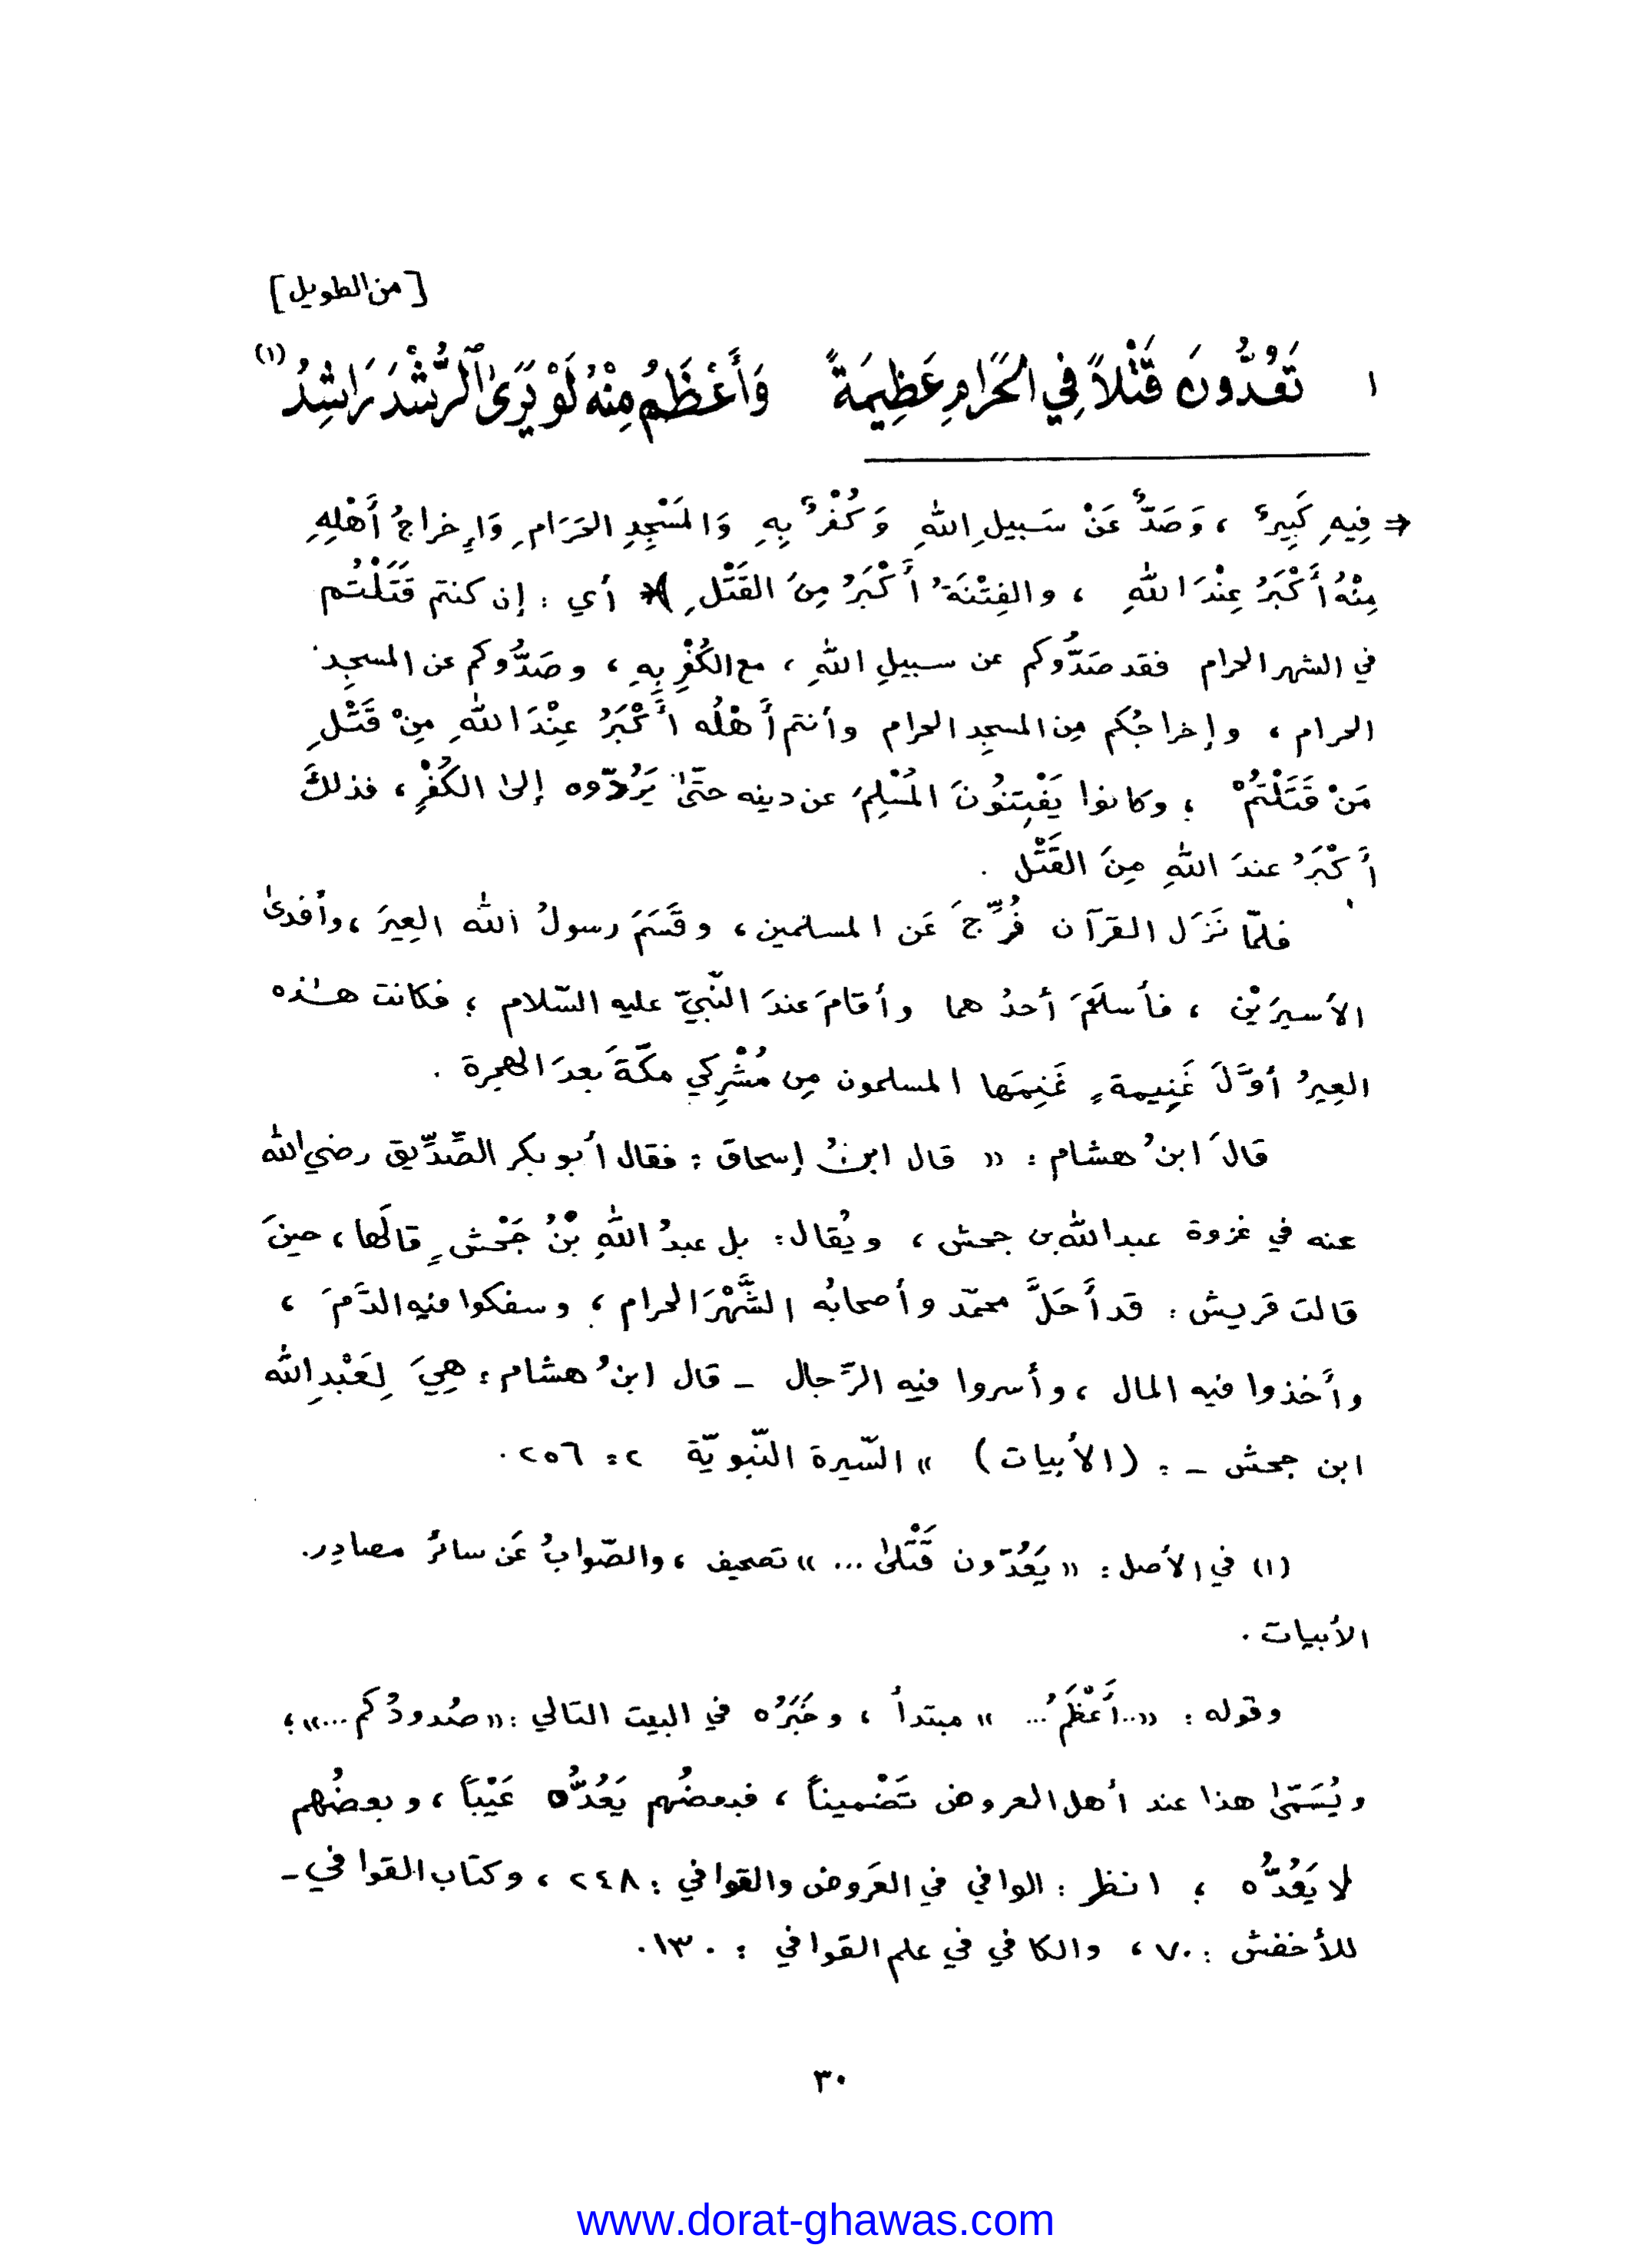 [من الطويل]
١ تَعُدُّونَ قَتْلاً فِي الحَرَامِ عَظِيمَةً وَأَعْظَمُ مِنْهُ لَوْ يَرَىٰ ٱلرُّشْدَ رَاشِدُ (١)
⇒ فِيهِ كَبِيرٌ ، وَصَدٌّ عَنْ سَبيلِ اللهِ وَكُفْرٌ بِهِ وَالمَسْجِدِ الحَرَامِ وَإِخراجُ أَهْلِهِ
مِنْهُ أَكْبَرُ عِنْدَ اللهِ ، والفِتْنَةُ أَكْبَرُ مِنَ القَتْلِ ﴾ أي : إن كنتم قَتَلْتُم
في الشهر الحرام فقد صَدُّوكم عن سبيلِ اللهِ ، مع الكُفْرِ بِهِ ، وصَدُّوكم عن المسجِد
الحرام ، وإخراجُكم مِن المسجِد الحرام وأنتم أَهْلُه أَكْبَرُ عِنْدَ اللهِ مِنْ قَتْلِ
مَنْ قَتَلْتُمْ ؛ وكانوا يَفْتِنُونَ المُسْلِمَ عن دينه حتّىٰ يَرُدّوه إلىٰ الكُفْرِ ، فذلكَ
أَكْبَرُ عندَ اللهِ مِنَ القَتْل .
فلمّا نَزَل القرآن فُرِّجَ عَن المسلمين ، وقَسَمَ رسولُ الله العِيرَ ، وأفدىٰ
الأسيرَيْن ، فأسلَمَ أحدُهما وأقامَ عندَ النّبيّ عليه السّلام ؛ فكانت هٰذه
العِيرُ أوَّلَ غَنِيمةٍ غَنِمَها المسلمون مِن مُشْرِكي مكّةَ بعدَ الهجرة .
قالَ ابنُ هشام : « قال ابنُ إسحاق : فقال أبو بكر الصِّدِّيق رضي الله
عنه في غزوة عبد الله بن جحش ، ويُقال : بل عبدُ اللهِ بْنُ جَحْشٍ قالَها ، حينَ
قالت قريش : قد أَحَلَّ محمّد وأصحابُه الشَّهْرَ الحرام ، وسفكوا فيه الدَّمَ ،
وأَخذوا فيه المال ، وأسروا فيه الرّجال ـ قال ابنُ هشام : هِيَ لِعَبْدِ الله
ابن جحش ـ : (الأبيات) » السّيرة النّبويّة ٢ : ٢٥٦ .
(١) في الأصل : « يَعُدّون قَتْلىٰ ... » تصحيف ، والصّوابُ عَن سائر مصادِر
الأبيات .
وقوله : « .. أَعْظَمُ ... » مبتدأ ، وخَبَرُه في البيت التالي : « صُدودُكم ... » ؛
ويُسَمّىٰ هذا عند أهل العروض تَضْميناً ، فبعضُهم يَعُدُّه عَيْباً ، وبعضُهم
لا يَعُدُّه ؛ انظر : الوافي في العَروض والقوافي : ٢٤٨ ، وكتاب القوافي ـ
للأخفش : ٧٠ ، والكافي في علم القوافي : ١٣٠ .
٣٠
www.dorat-ghawas.com